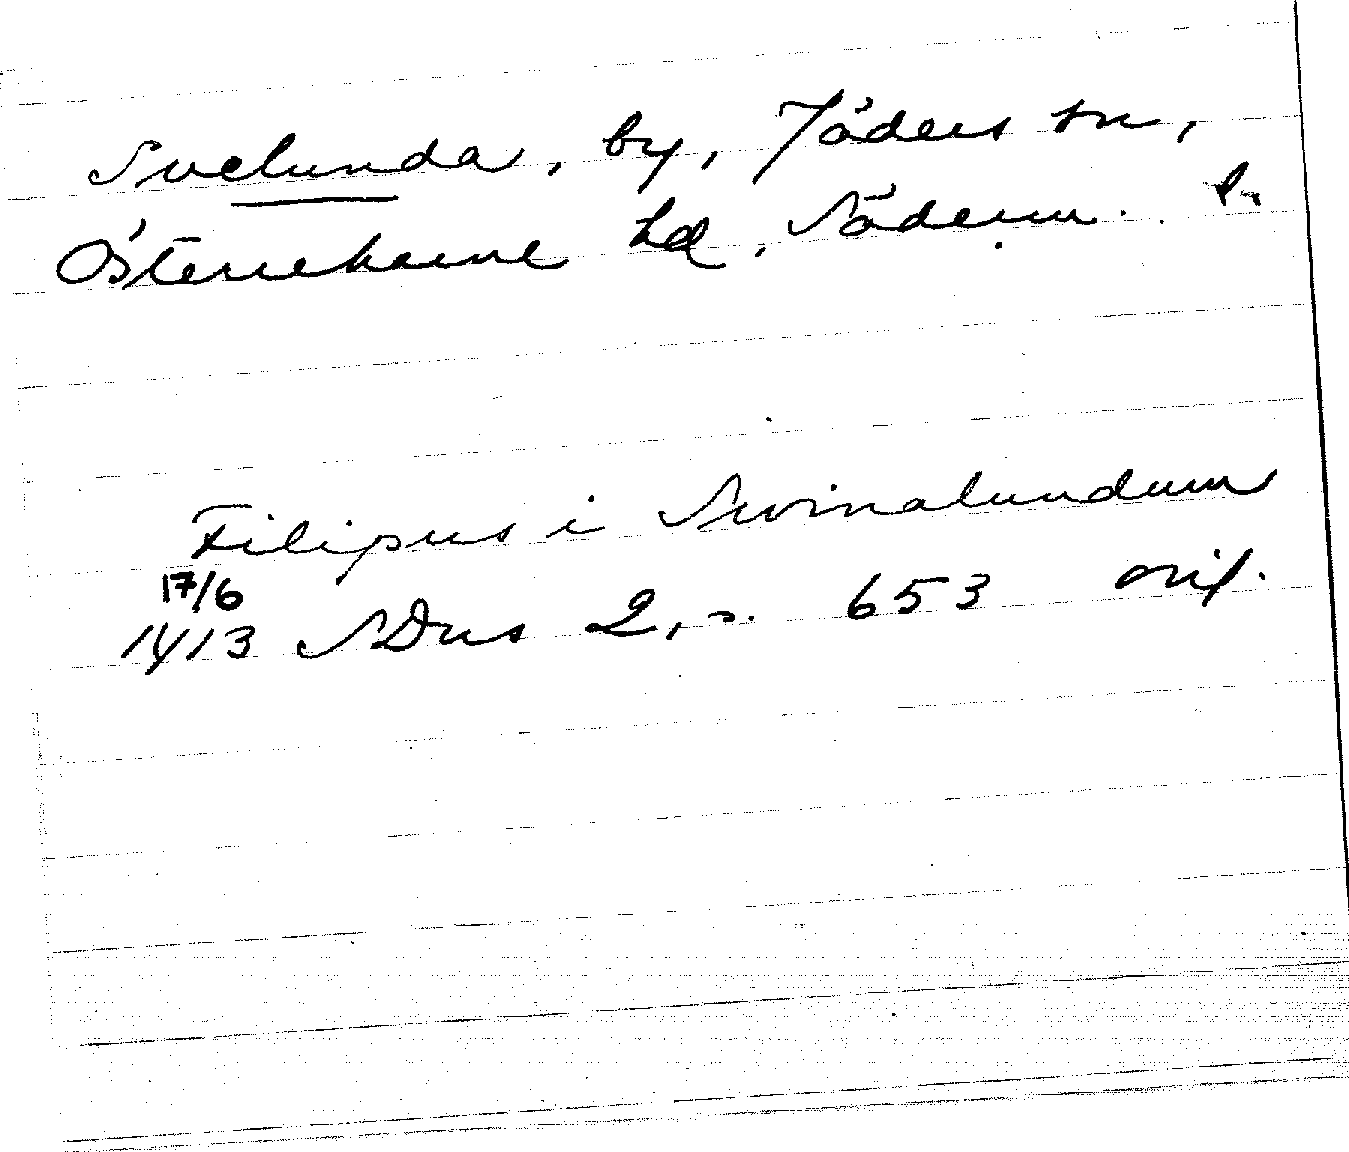 Svelunda, by, Jäders sn,
Österrekarne hd, Söderm. l.
Filipus i Swinalundum
17/6
1413 SDns 2, s. 653 orig.